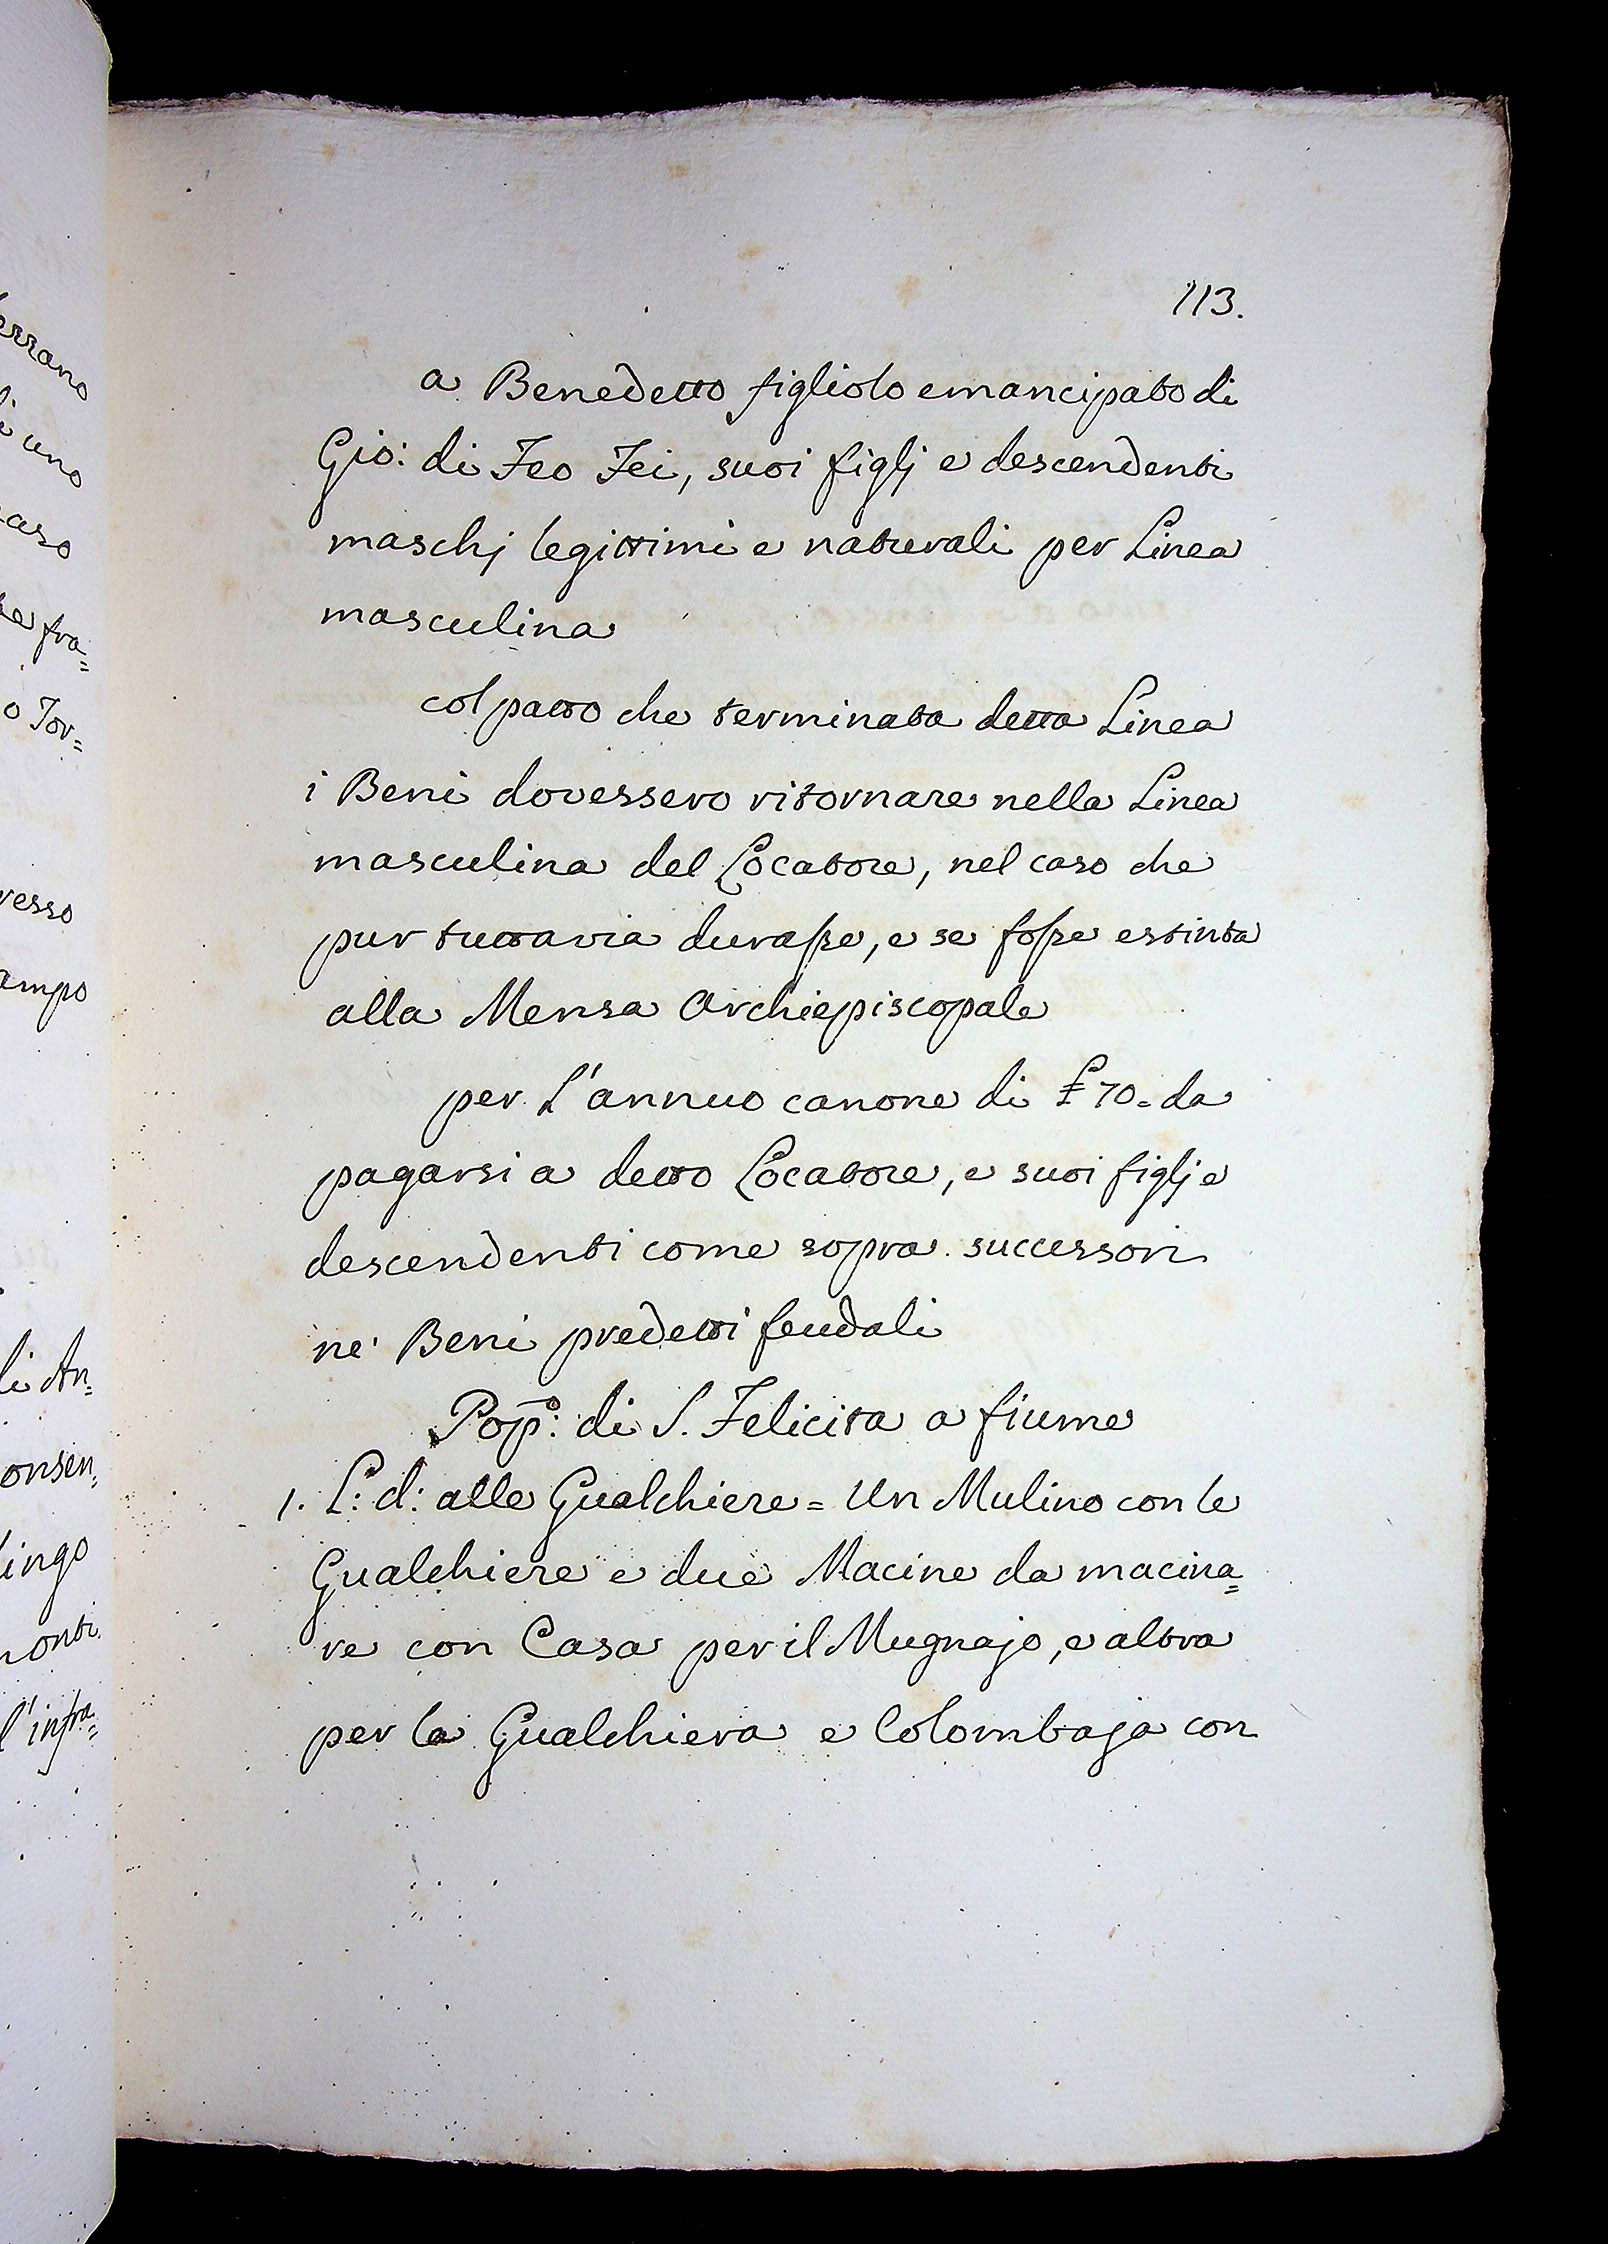 errano
uno
caso
fra=
o Tor=
resso
ampo
li An=
onsen=
lingo
monti
l'infra=
113.
a Benedetto figliolo emancipato di
Gio: di Feo Fei, suoi figlj e descendenti
maschj legittimi e naturali per Linea
masculina
col patto che terminata detta Linea
i Beni dovessero ritornare nella Linea
masculina del Locatore, nel caso che
pur tuttavia durasse, e se fosse estinta
alla Mensa Archiepiscopale
per L'annuo canone di £ 70 = da
pagarsi a detto Locatore, e suoi figlj e
descendenti come sopra successori
ne' Beni predetti feudali
Pop.o: di S. Felicita a fiume
1. L: d: alle Gualchiere = Un Mulino con le
Gualchiere e due Macine da macina=
re con Casa per il Mugnajo, e altra
per la Gualchiera e Colombaja con